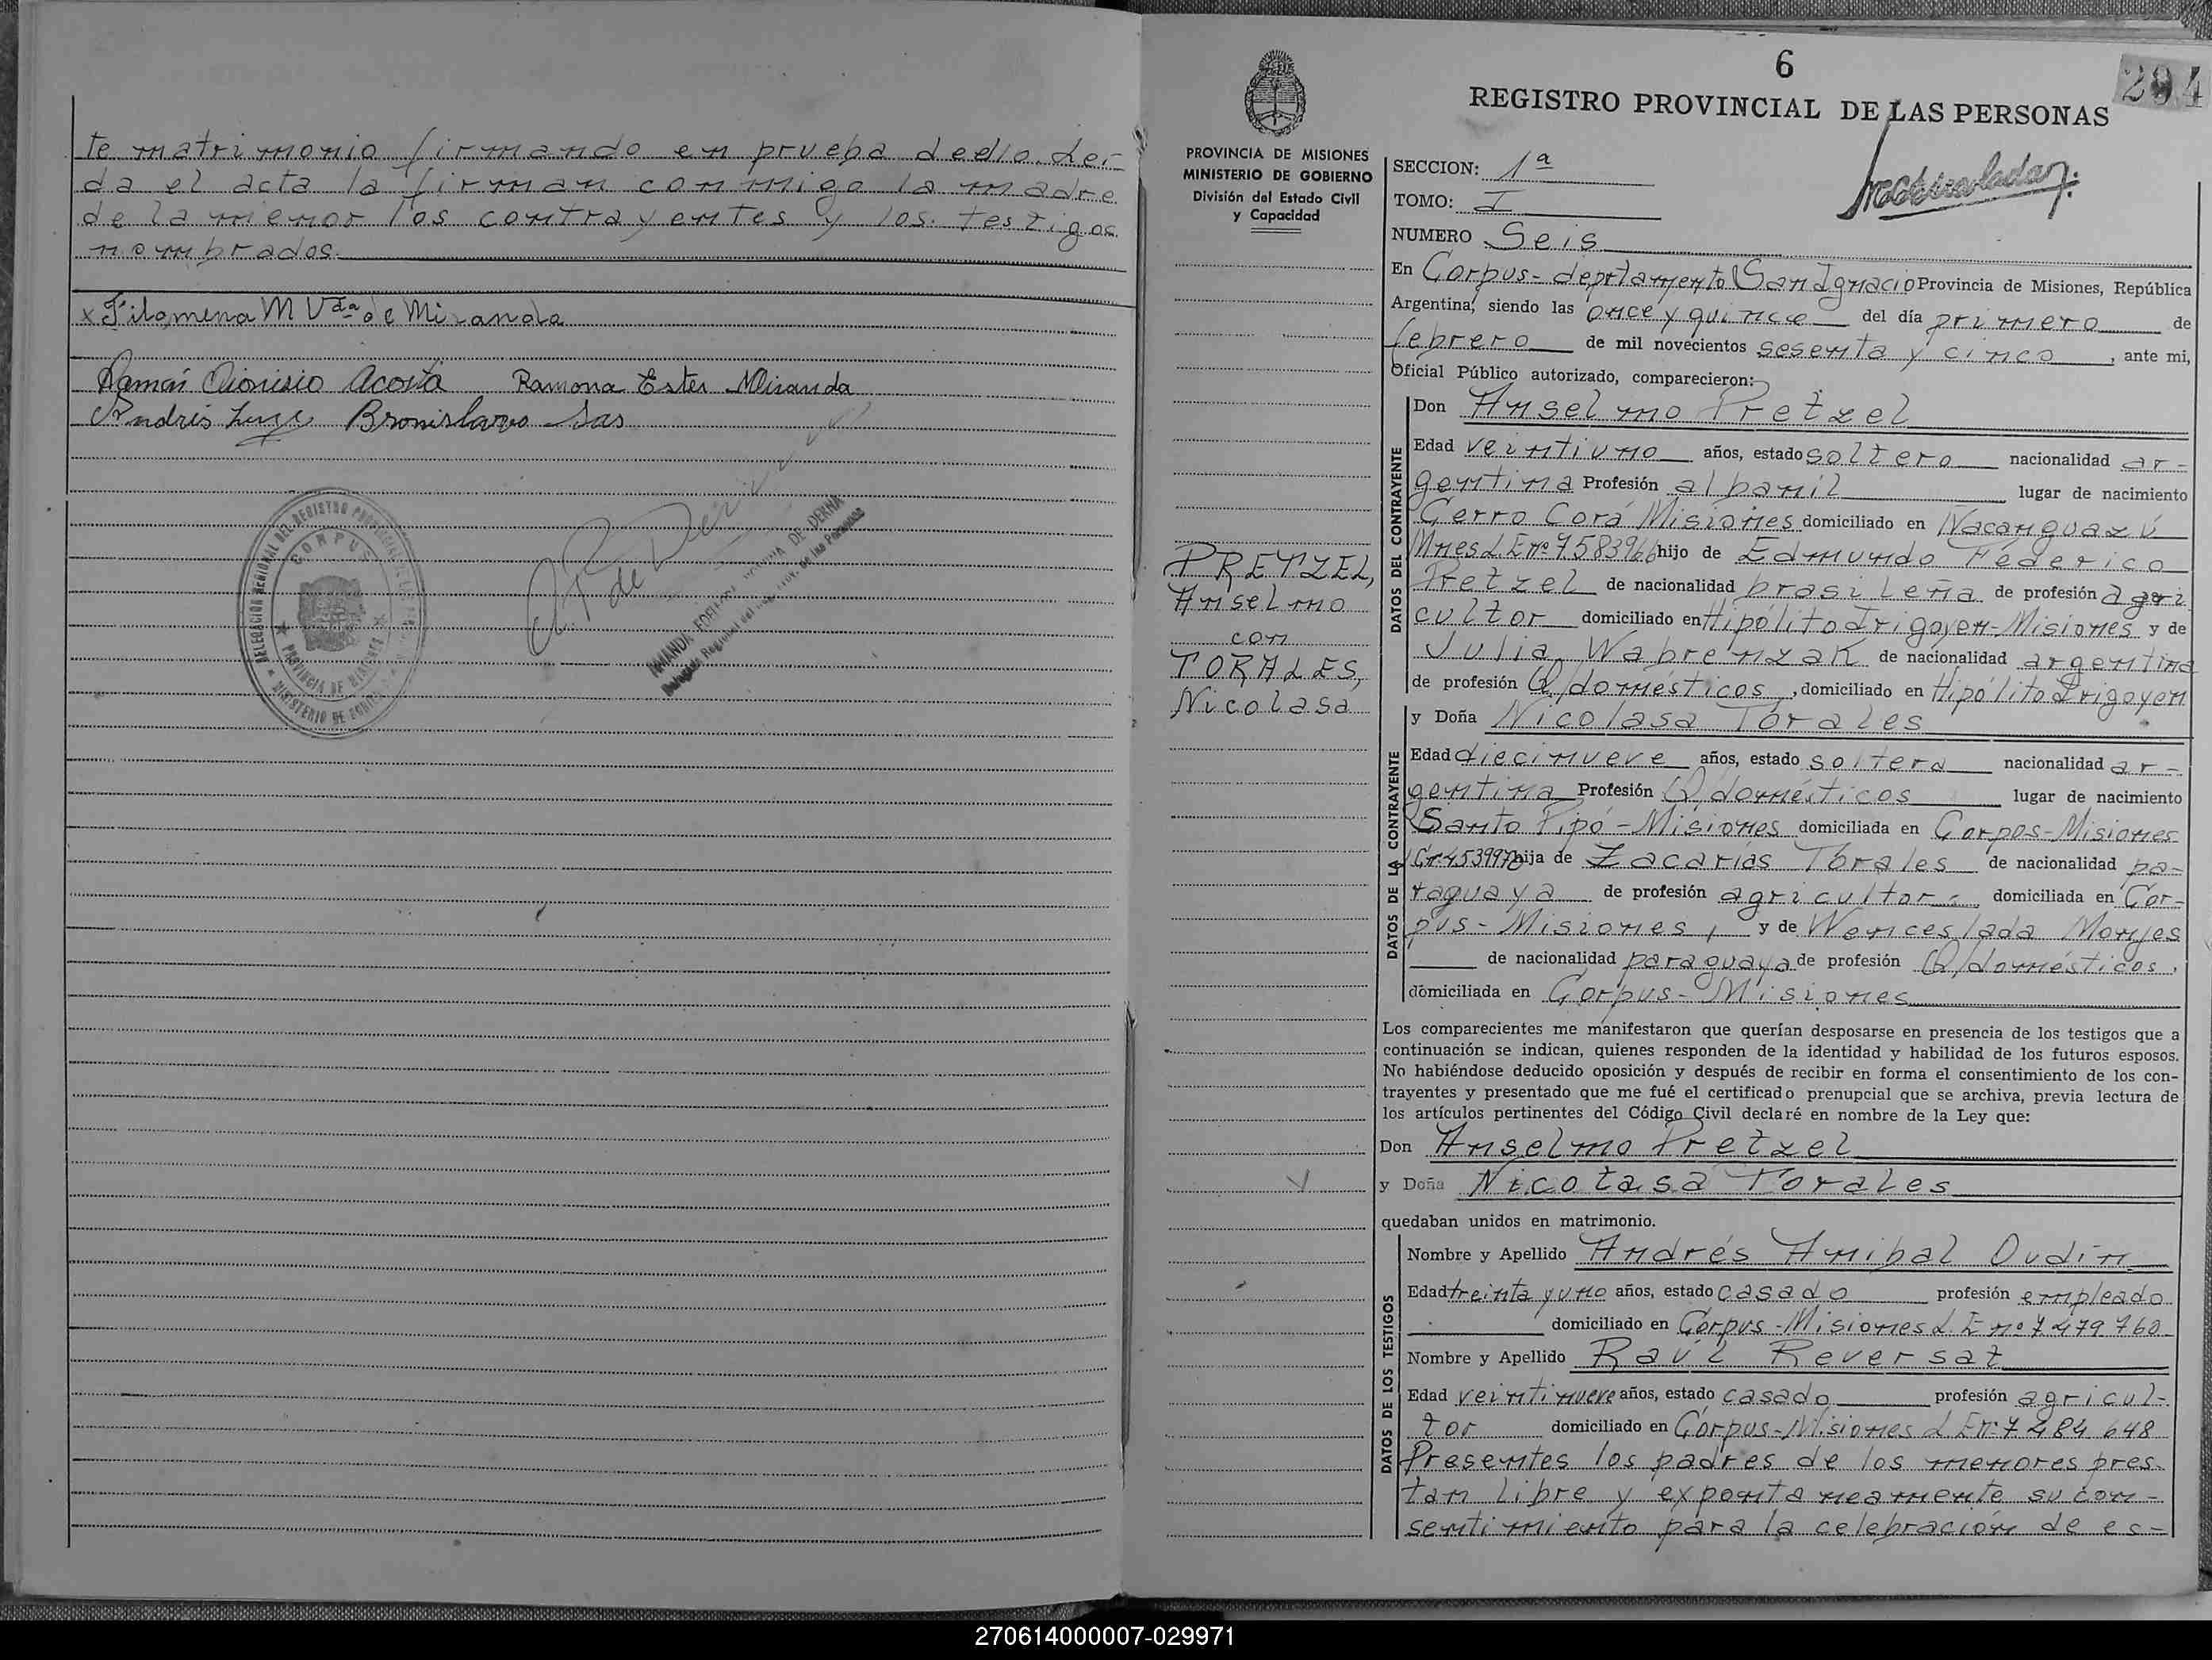 te matrimonio firmando en prueba de ello. Leí-
da el acta la firman conmigo la madre
de la menor los contrayentes y los testigos
nombrados.
x Filomena M Vda de Miranda
Ramón Dionisio Acosta Ramona Ester Miranda
Andrés Bronislavo Sas
DELEGACION REGIONAL DEL REGISTRO PROVINCIAL DE LAS
CORPUS
PROVINCIA DE MISIONES
MINISTERIO DE GOBIERNO
DE DERNA
Delegada Regional del Reg. Prov. de las Personas
6
294
REGISTRO PROVINCIAL DE LAS PERSONAS
PROVINCIA DE MISIONES
MINISTERIO DE GOBIERNO
División del Estado Civil
y Capacidad
SECCION: 1ª
TOMO: I
NUMERO Seis
En Corpus-deprtamento San Ignacio Provincia de Misiones, República
Argentina, siendo las once y quince del día primero de
febrero de mil novecientos sesenta y cinco, ante mi,
Oficial Público autorizado, comparecieron:
PRETZEL,
Anselmo
con
TORALES,
Nicolasa
DATOS DEL CONTRAYENTE
Don Anselmo Pretzel
Edad veintiuno años, estado soltero nacionalidad ar-
gentina Profesión albañil lugar de nacimiento
Cerro Corá Misiones domiciliado en Ñacanguazú
Mnes L.E nº 7583966 hijo de Edmundo Féderico
Pretzel de nacionalidad brasileña de profesión agri
cultor domiciliado en Hipólito Irigoyen-Misiones y de
Julia Wabrenzak de nacionalidad argentina
de profesión Q/domésticos, domiciliado en Hipólito Irigoyen
DATOS DE LA CONTRAYENTE
y Doña Nicolasa Torales
Edad diecinueve años, estado soltera nacionalidad ar-
gentina Profesión Q/domésticos lugar de nacimiento
Santo Pipó-Misiones domiciliada en Corpus-Misiones
hija de Zacarías Torales de nacionalidad pa-
raguaya de profesión agricultor- domiciliada en Cor-
pus-Misiones, y de Wenceslada Monjes
de nacionalidad paraguaya de profesión Q/domésticos,
domiciliada en Corpus-Misiones
Los comparecientes me manifestaron que querían desposarse en presencia de los testigos que a
continuación se indican, quienes responden de la identidad y habilidad de los futuros esposos.
No habiéndose deducido oposición y después de recibir en forma el consentimiento de los con-
trayentes y presentado que me fué el certificado prenupcial que se archiva, previa lectura de
los artículos pertinentes del Código Civil declaré en nombre de la Ley que:
Don Anselmo Pretzel
y Doña Nicolasa Torales
quedaban unidos en matrimonio.
DATOS DE LOS TESTIGOS
Nombre y Apellido Andrés Anibal Oudín
Edad treinta y uno años, estado casado profesión empleado
domiciliado en Corpus-Misiones L.E nº 7479760
Nombre y Apellido Raúl Reversat
Edad veintinueve años, estado casado profesión agricul-
tor domiciliado en Corpus-Misiones L.E nº 7484648
Presentes los padres de los menores pres-
tan libre y expontaneamente su con-
sentimiento para la celebración de es-
270614000007-029971